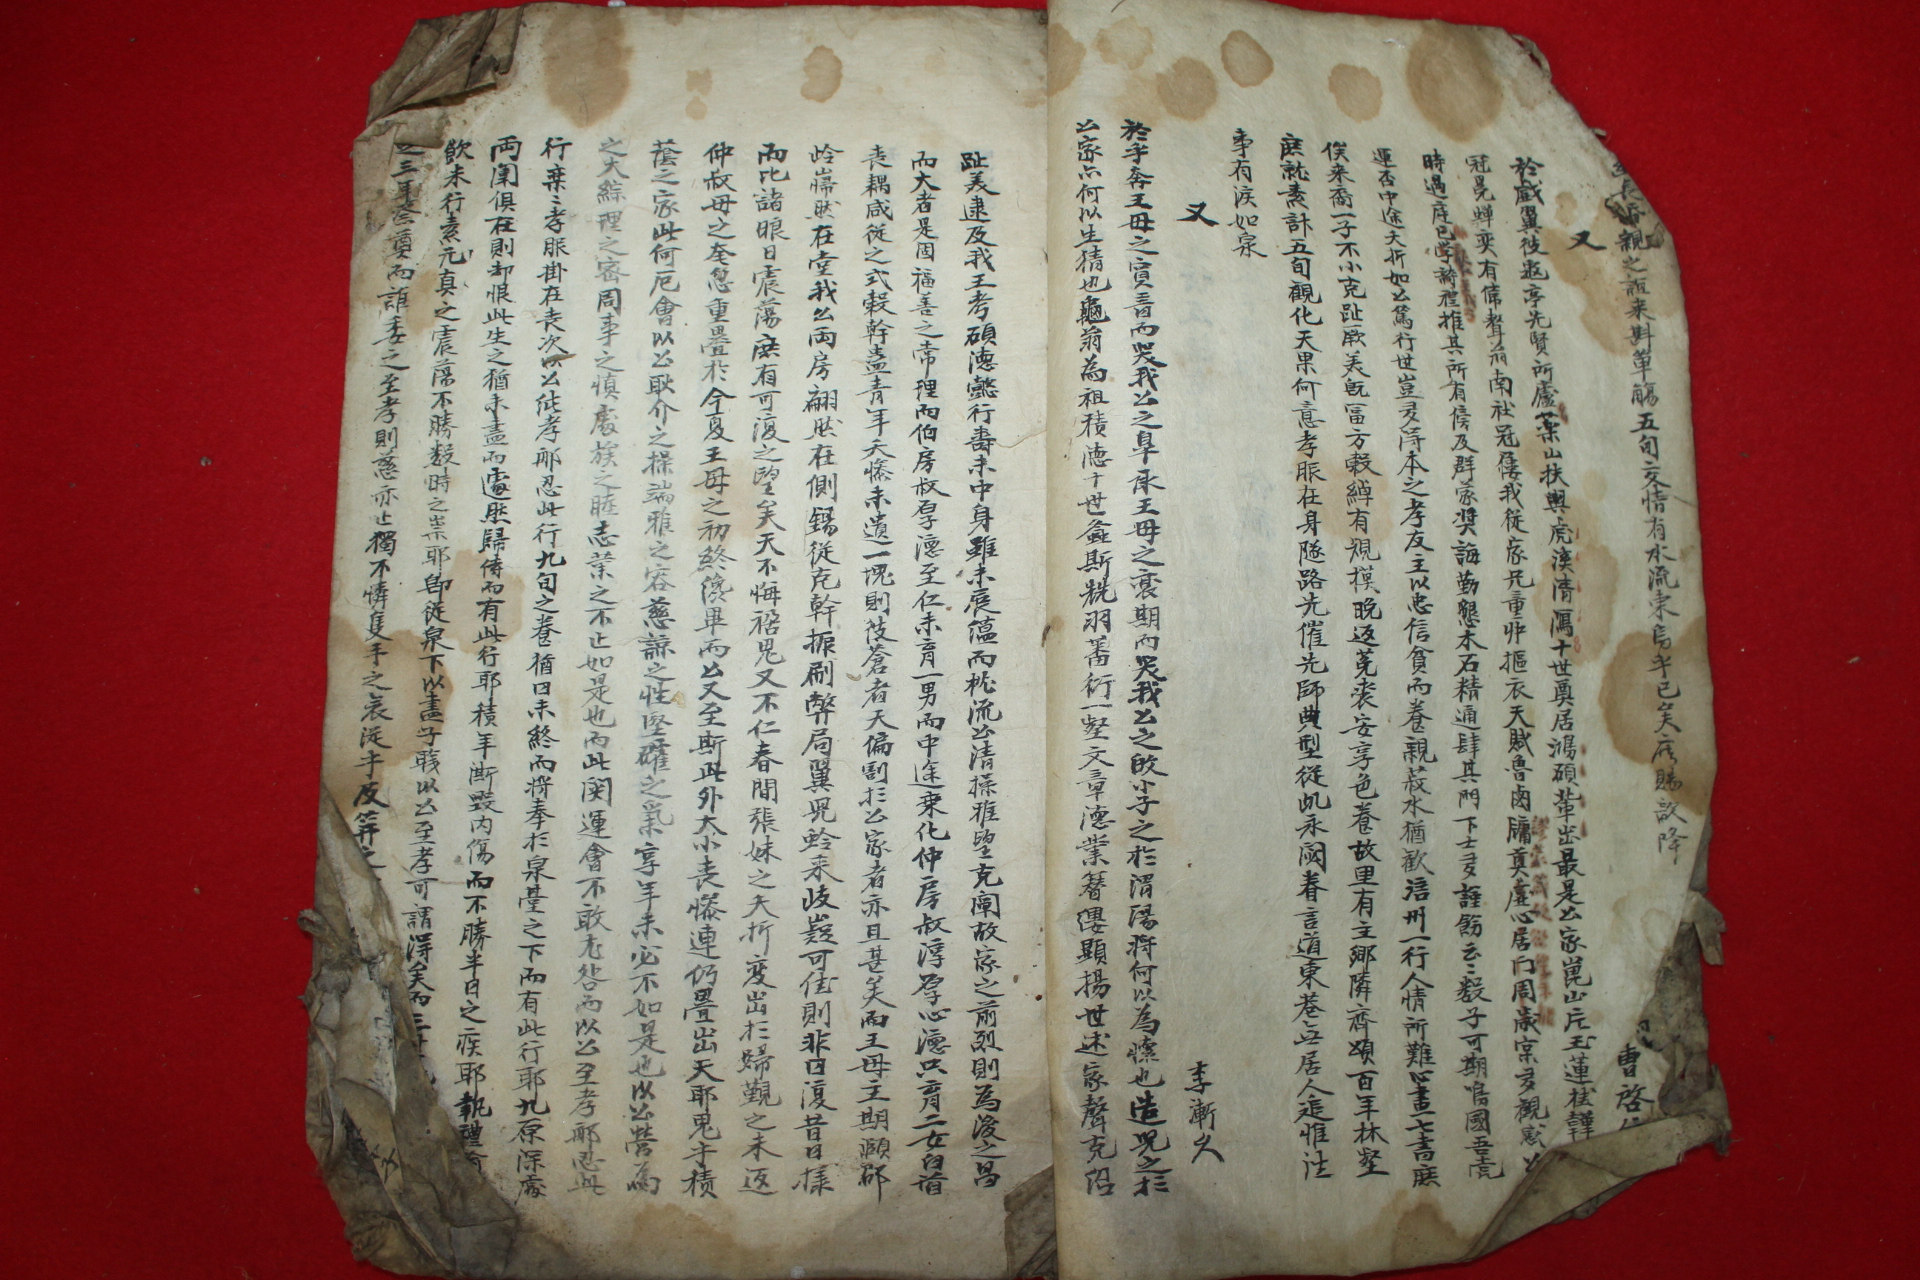 親之誼來斟單觴五旬交情有水流東烏乎已矣庶賜歆降
曹啓
又
於戲翼彼遯亭先賢所廬葉山扶輿虎溪清瀉十世奠居鴻碩輩出最是公家崑山片玉蓮桂韡
冠冕蟬奕有偉聲前南社冠儒我從家兄童丱摳衣天賦魯鹵牖莫虛心居門周歲宗多觀感公
時過庭已學詩禮推其所有傍及群蒙獎誨勤懇木石精通肆其門下士多謹飭云云數子可期嗚國吾壼
運否中途夭折如公篤行世豈多得本之孝友主以忠信貧而養親菽水猶歡涪州一行人情所難心畫七書庶
俟來裔一子不小克趾厥美旣富方穀綽有規模晩返菟裘安享色養故里有主鄕隣齊頌百年林壑
庶就素計五旬觀化天果何意孝服在身隧路先催先師典型從此永閟眷言道東巷無居人追惟注
事有淚如泉
又
李漸久
於乎奔王母之實音而哭我公之皐承王母之襄期而哭我公之啟小子之於渭陽將何以為懷也造兕之於
公家亦何以生猜也龜翁為祖積德十世螽斯詵羽蕃衍一壑文章德業簪纓顯揚世述家聲克紹
趾美逮及我王考碩德懿行壽未中身雖未展蘊而枕流公清操雅望克闡故家之前烈則為後之昌
而大者是固福善之常理而伯房叔厚德至仁未育一男而中途乘化仲房叔淳厚心德只育二女白首
喪耦咸從之式穀幹蠱青年夭慘未遺一塊則彼蒼者天偏割於公家者亦且甚矣而王母主期頤卲
岭巋然在堂我公兩房翩然在側錫從克幹振刷弊局翼兕齡來岐嶷可佳則非曰復昔日樣
而比諸眼日震蕩庶有可復之望矣天不悔禍鬼又不仁春間張妹之夭折變出於歸覲之未返
仲叔母之奄忽重疊於今夏王母之初終纔畢而公又至斯此外大小喪慘連仍疊出天耶鬼乎積
蔭之家此何厄會以公耿介之操端雅之容慈諒之性堅確之氣享年未必不如是也以公營為
之大綜理之密周事之愼處族之睦志業之不止如是也而此関運會不敢尤咎而以公至孝耶忍此
行棄之孝服掛在喪次以公能孝耶忍此行九旬之養猶曰未終而將奉於泉臺之下而有此行耶九原深處
兩闈俱在則却恨此生之猶未盡而遽然歸侍而有此行耶積年斷毀內傷而不勝半日之疾耶執禮
飮未行素元真之震蕩不勝數時之祟耶卽從泉下以盡子職以公至孝可謂得矣而三
之三年委而誰委之至孝則慈亦止獨不憐隻手之哀從乎及笄之